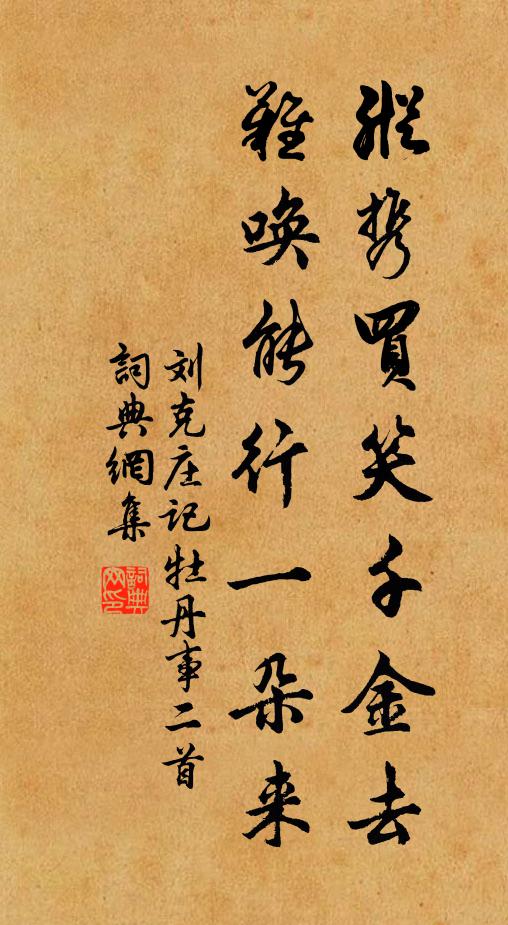 縱携買笑千金去
難唤能行一朵来
刘克庄记牡丹事二首
詞典網集
詞典网印